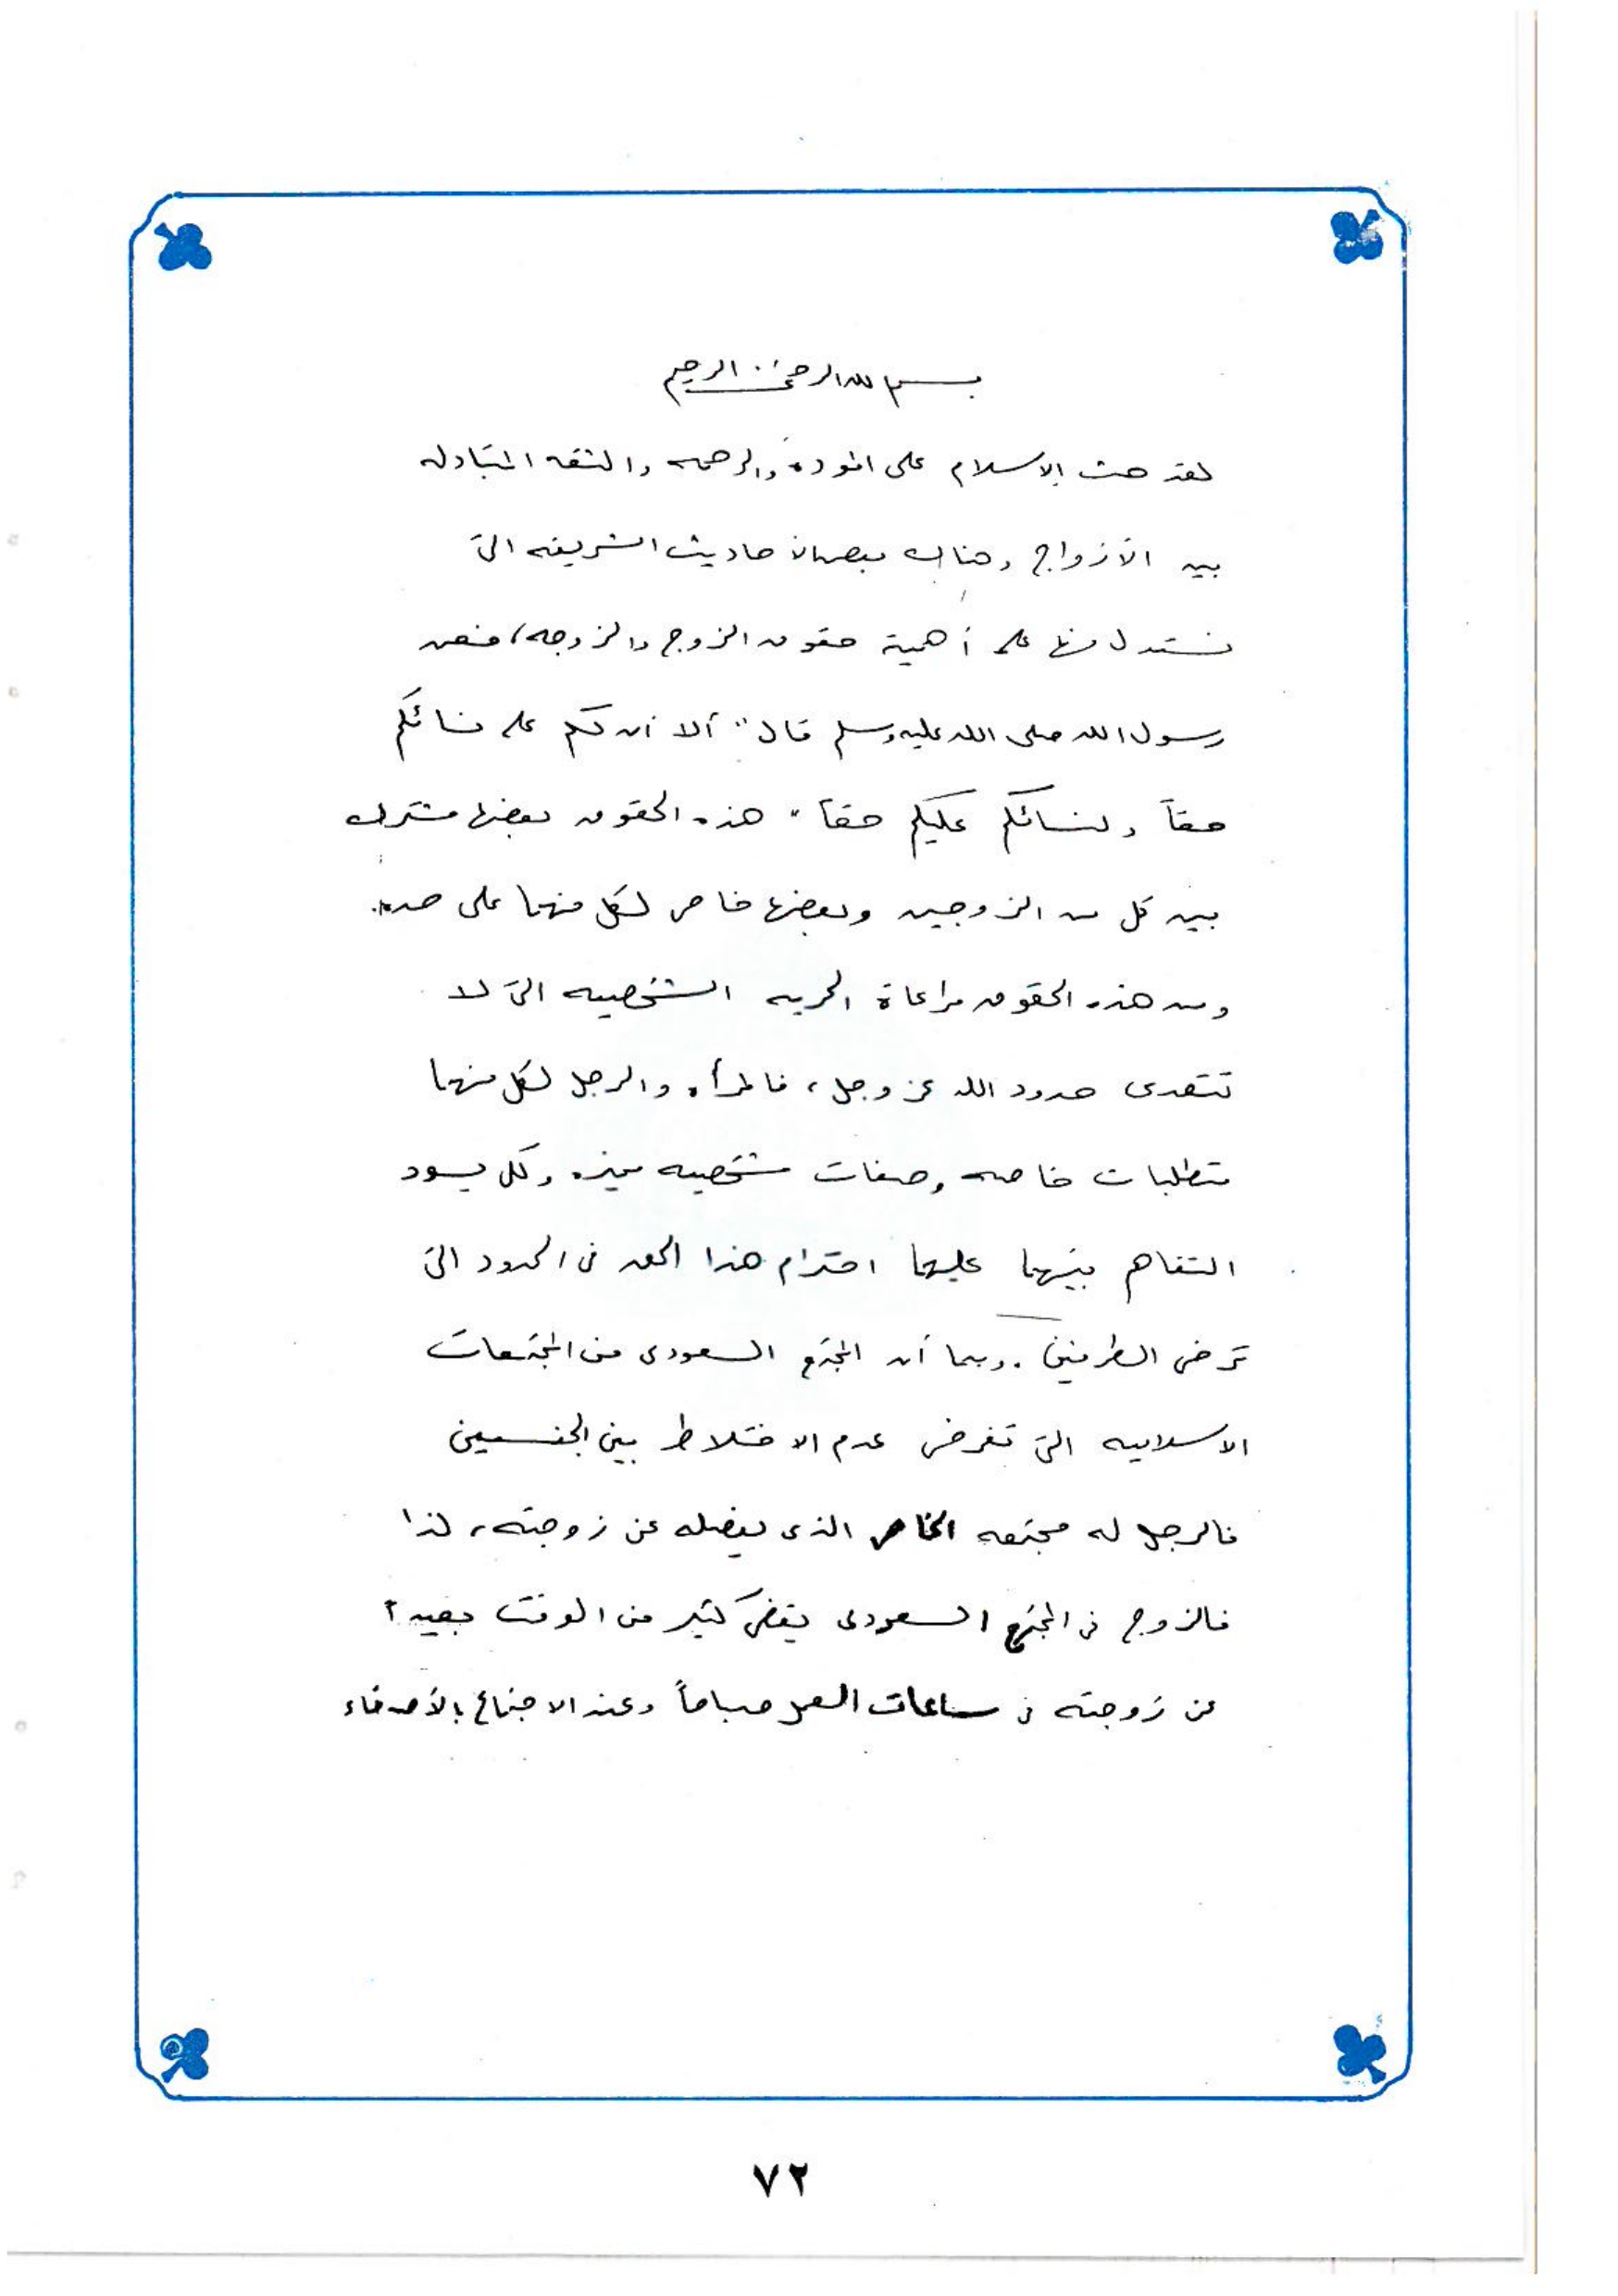 بسم الله الرحمن الرحيم
لقد حث الإسلام على المودة والرحمه والثقه المتبادله
بين الأزواج وهناك بعض الأحاديث الشريفه التي
نستدل منها على أهمية حقوق الزوج والزوجه، فنص
رسول الله صلى الله عليه وسلم قال " ألا أن لكم على نسائكم
حقاً ولنسائكم عليكم حقاً " هذه الحقوق بعضها مشترك
بين كل من الزوجين وبعضها خاص لكل منهما على حده.
ومن هذه الحقوق مراعاة الحريه الشخصيه التي لا
تتعدى حدود الله عز وجل، فالمرأه والرجل لكل منهما
متطلبات خاصه وصفات شخصيه مميزه ولكل يسود
التفاهم بينهما عليهما احترام هذا الحق في الحدود التي
ترضى الطرفين. وبما أن المجتمع السعودى من المجتمعات
الاسلاميه التي تفرض عدم الاختلاط بين الجنسين
فالرجل له مجتمعه الخاص الذى يفصله عن زوجته، لذا
فالزوج في المجتمع السعودى يقضي كثير من الوقت بعيداً
عن زوجته في ساعات العمل صباحاً وعند الاجتماع بالأصدقاء
٧٢